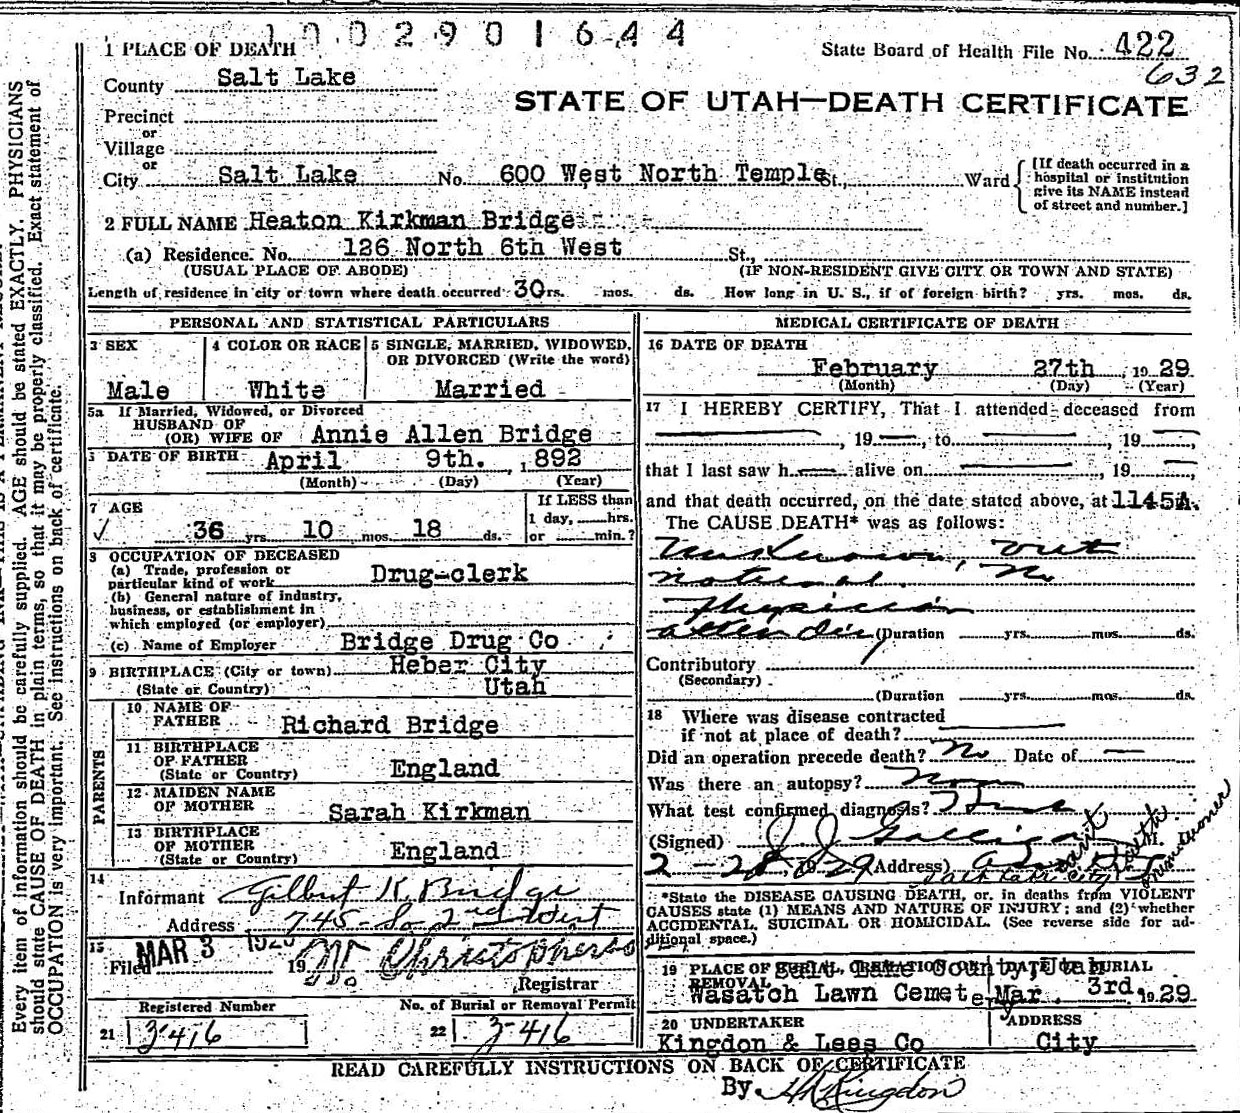 1002901644
1 PLACE OF DEATH
State Board of Health File No. 422
632
County Salt Lake
STATE OF UTAH—DEATH CERTIFICATE
Precinct
or
Village
or
City Salt Lake No. 600 West North Temple St., Ward
[If death occurred in a
hospital or institution
give its NAME instead
of street and number.]
2 FULL NAME Heaton Kirkman Bridge
(a) Residence. No. 126 North 6th West St.,
(USUAL PLACE OF ABODE) (IF NON-RESIDENT GIVE CITY OR TOWN AND STATE)
Length of residence in city or town where death occurred 30 yrs. mos. ds. How long in U. S., if of foreign birth? yrs. mos. ds.
PERSONAL AND STATISTICAL PARTICULARS
3 SEX
Male
4 COLOR OR RACE
White
5 SINGLE, MARRIED, WIDOWED,
OR DIVORCED (Write the word)
Married
5a If Married, Widowed, or Divorced
HUSBAND OF
(OR) WIFE OF Annie Allen Bridge
DATE OF BIRTH April 9th. , 1892
(Month) (Day) (Year)
7 AGE
36 yrs 10 mos. 18 ds.
If LESS than
1 day, hrs.
or min.?
8 OCCUPATION OF DECEASED
(a) Trade, profession or
particular kind of work Drug-clerk
(b) General nature of industry,
business, or establishment in
which employed (or employer)
(c) Name of Employer Bridge Drug Co
9 BIRTHPLACE (City or town) Heber City
(State or Country) Utah
PARENTS
10 NAME OF
FATHER Richard Bridge
11 BIRTHPLACE
OF FATHER
(State or Country) England
12 MAIDEN NAME
OF MOTHER Sarah Kirkman
13 BIRTHPLACE
OF MOTHER
(State or Country) England
14
Informant Gilbert K. Bridge
Address 745 So 2nd West
15
Filed MAR 3 1929 19
Christopherso
Registrar
Registered Number
21 3416
No. of Burial or Removal Permit
22 3-416
MEDICAL CERTIFICATE OF DEATH
16 DATE OF DEATH
February 27th , 1929
(Month) (Day) (Year)
17 I HEREBY CERTIFY, That I attended deceased from
, 19 , to , 19 ,
that I last saw h alive on , 19
and that death occurred, on the date stated above, at 1145A.
The CAUSE DEATH* was as follows:
Unknown, but
natural. No
Physician
attending (Duration yrs. mos. ds.
Contributory
(Secondary)
(Duration yrs. mos. ds.
18 Where was disease contracted
if not at place of death?
Did an operation precede death? No Date of
Was there an autopsy? None
What test confirmed diagnosis?
(Signed) J J Galligan M. D.
2 - 28 1929 (Address)
*State the DISEASE CAUSING DEATH, or, in deaths from VIOLENT
CAUSES state (1) MEANS AND NATURE OF INJURY; and (2) whether
ACCIDENTAL, SUICIDAL OR HOMICIDAL. (See reverse side for ad-
ditional space.)
19 PLACE OF BURIAL, CREMATION OR REMOVAL Salt Lake County, Utah
Wasatch Lawn Cemetery
DATE OF BURIAL
Mar. 3rd. 1929
20 UNDERTAKER
Kingdon & Lees Co
ADDRESS
City
READ CAREFULLY INSTRUCTIONS ON BACK OF CERTIFICATE
By H K Kingdon
Every item of information should be carefully supplied. AGE should be stated EXACTLY. PHYSICIANS
should state CAUSE OF DEATH in plain terms, so that it may be properly classified. Exact statement of
OCCUPATION is very important. See instructions on back of certificate.